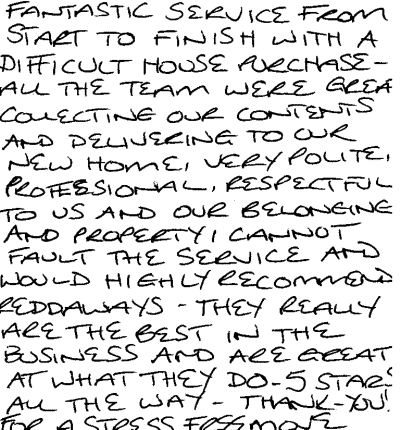 FANTASTIC SERVICE FROM
START TO FINISH WITH A
DIFFICULT HOUSE PURCHASE -
ALL THE TEAM WERE GREA
COLLECTING OUR CONTENTS
AND DELIVERING TO OUR
NEW HOME, VERY POLITE,
PROFESSIONAL, RESPECTFUL
TO US AND OUR BELONGING
AND PROPERTY, CANNOT
FAULT THE SERVICE AND
WOULD HIGHLY RECOMMEND
REDDAWAYS - THEY REALLY
ARE THE BEST IN THE
BUSINESS AND ARE GREAT
AT WHAT THEY DO - 5 STARS
ALL THE WAY - THANK-YOU!
FOR A STRESS FREE MOVE